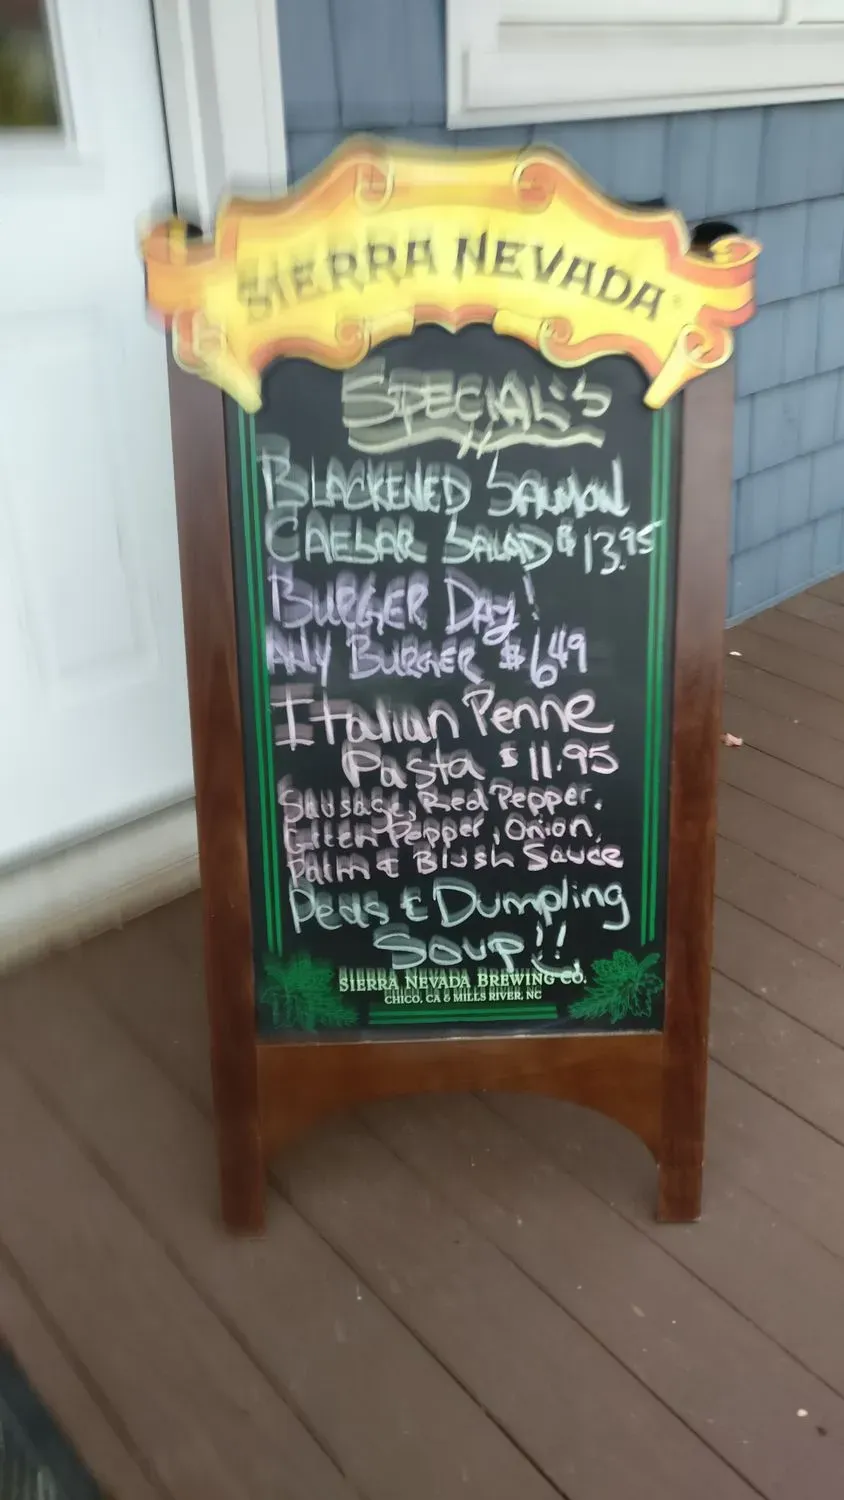 SIERRA NEVADA
SPECIAL'S
BLACKENED SALMON
CAESAR SALAD $13.95
BURGER DAY!
ANY BURGER $6.49
Italian Penne
Pasta $11.95
Sausage, Red Pepper,
Green Pepper, Onion,
Parm & Blush Sauce
Peas & Dumpling
Soup!!
SIERRA NEVADA BREWING CO.
CHICO, CA & MILLS RIVER, NC